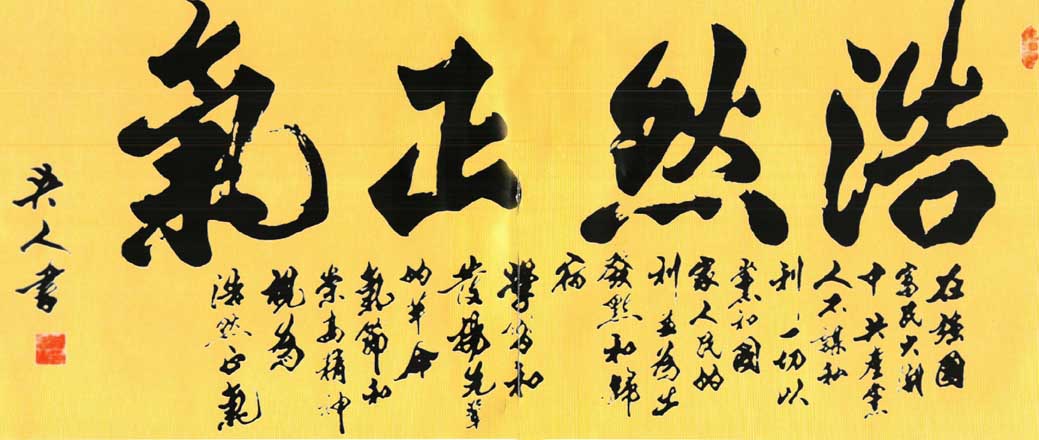 浩然正氣
在強國
富民大潮
中共產黨
人不謀私
利一切以
黨和國
家人民的
利益為出
發點和歸
宿
學習和
發揚先輩
的革命
氣節和
崇高精神
視為
浩然正氣
人書